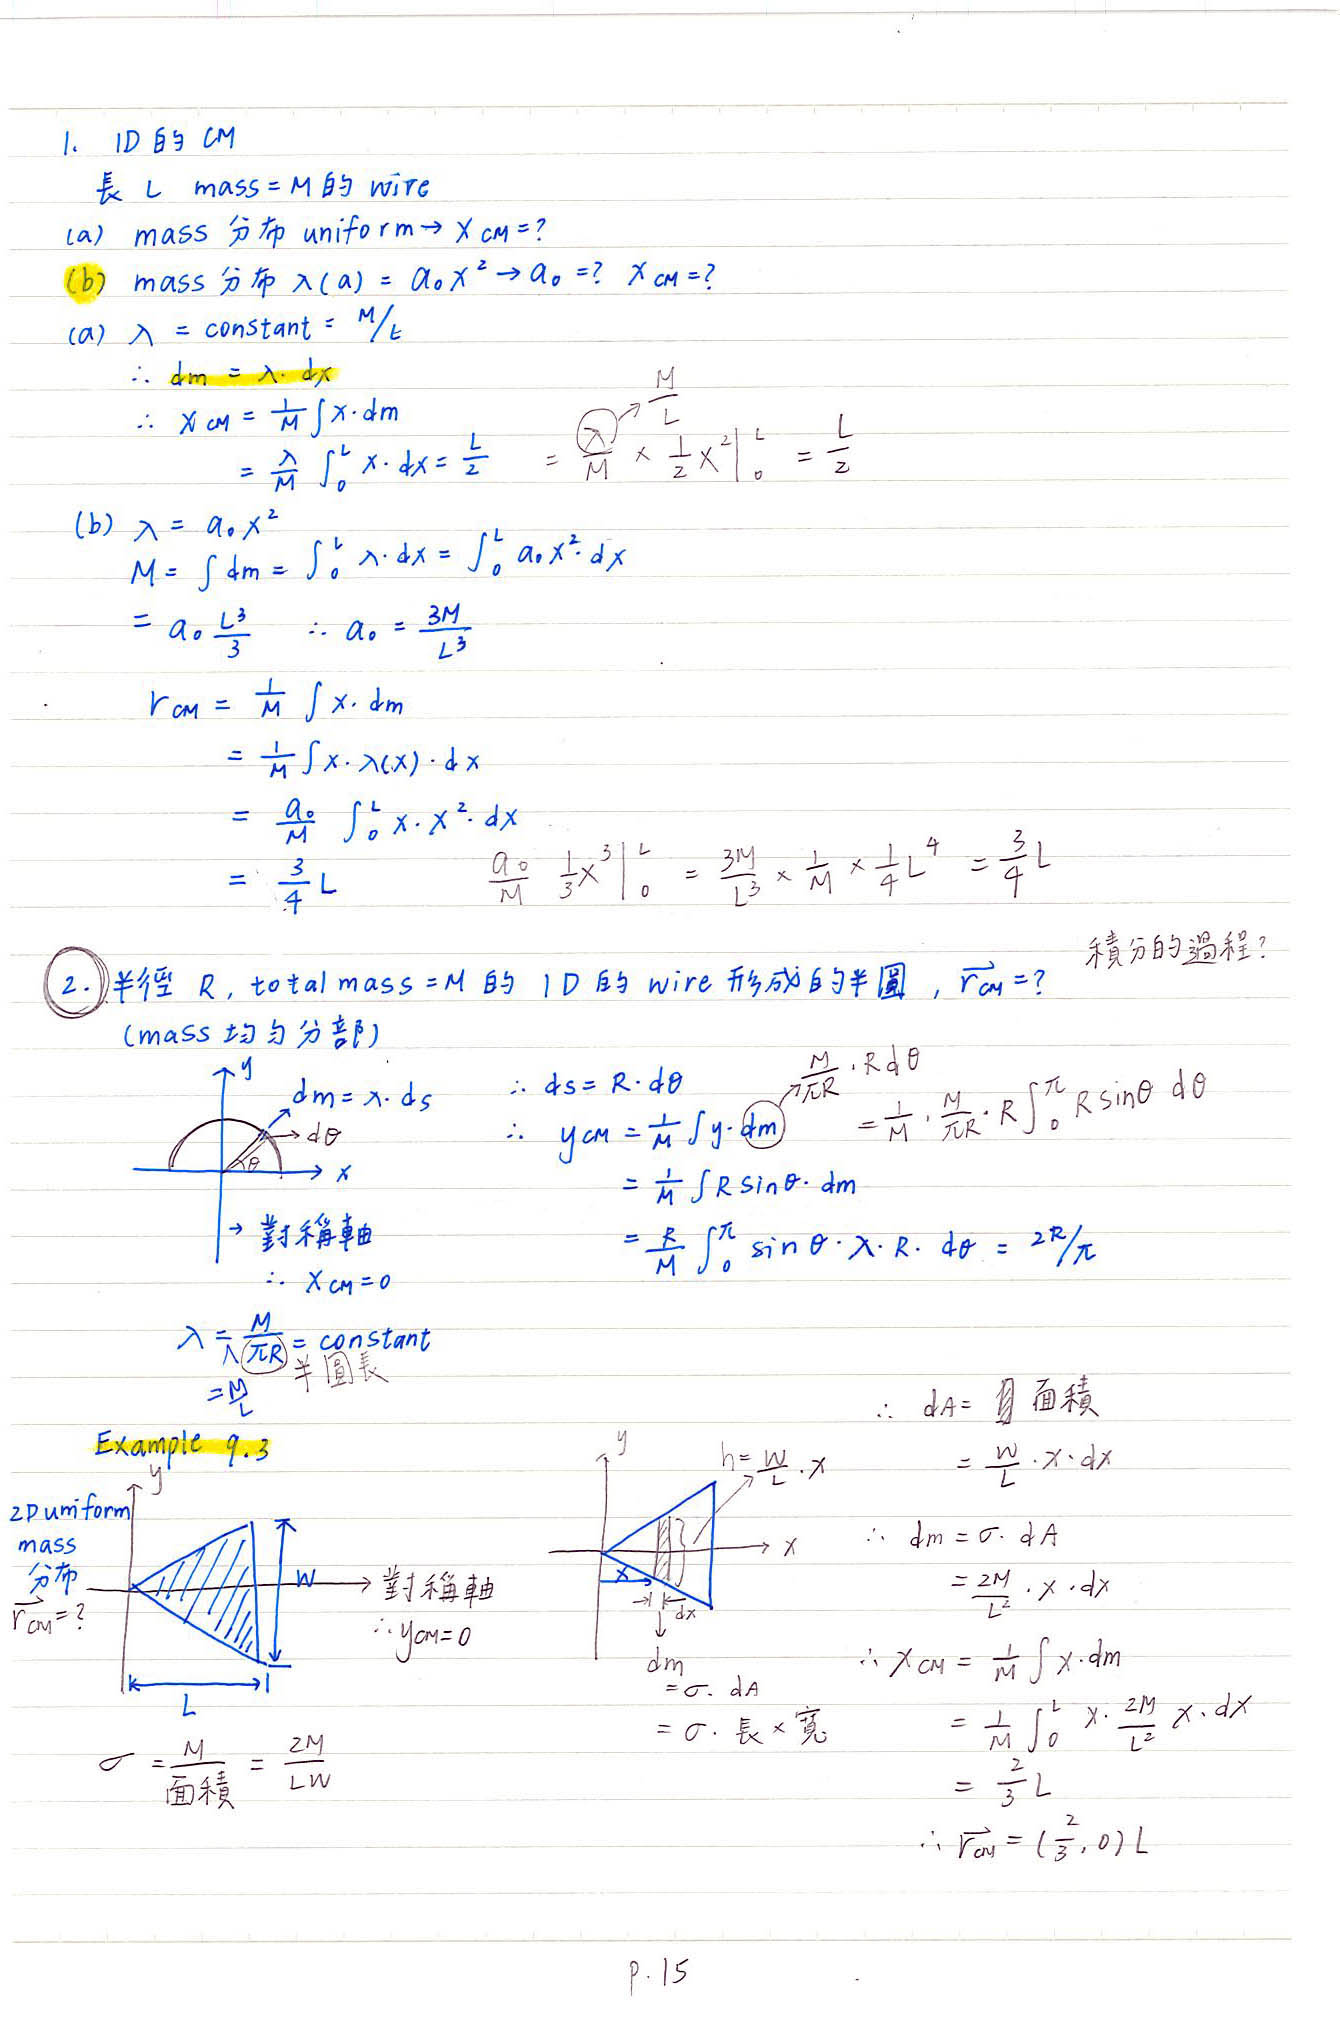 1. 1D的CM
長 L mass = M 的 wire
(a) mass 分布 uniform → x_CM = ?
(b) mass 分布 λ(a) = a₀x² → a₀ = ? x_CM = ?
(a) λ = constant = M/L
∴ dm = λ · dx
∴ x_CM = 1/M ∫ x · dm
= λ/M ∫₀ᴸ x · dx = L/2 = λ/M × 1/2 x² |₀ᴸ = L/2
M/L
(b) λ = a₀x²
M = ∫ dm = ∫₀ᴸ λ · dx = ∫₀ᴸ a₀x² · dx
= a₀ L³/3 ∴ a₀ = 3M/L³
r_CM = 1/M ∫ x · dm
= 1/M ∫ x · λ(x) · dx
= a₀/M ∫₀ᴸ x · x² · dx
= 3/4 L a₀/M 1/3 x³ |₀ᴸ = 3M/L³ × 1/M × 1/4 L⁴ = 3/4 L
積分的過程?
2. 半徑 R, total mass = M 的 1D 的 wire 形成的半圓, r⃗_CM = ?
(mass 均勻分部)
y
dm = λ · ds
dθ
θ
x
→ 對稱軸
∴ x_CM = 0
λ = M/πR = constant
半圓長
= M/L
∴ ds = R · dθ
M/πR · R dθ
∴ y_CM = 1/M ∫ y · dm = 1/M · M/πR · R ∫₀^π R sinθ dθ
= 1/M ∫ R sinθ · dm
= R/M ∫₀^π sinθ · λ · R · dθ = 2R/π
Example 9.3
2D uniform
mass
分布
r⃗_CM = ?
y
W
L
對稱軸
∴ y_CM = 0
σ = M/面積 = 2M/LW
y
h = W/L · x
x
x
dx
dm
= σ · dA
= σ · 長 × 寬
∴ dA = 面積
= W/L · x · dx
∴ dm = σ · dA
= 2M/L² · x · dx
∴ x_CM = 1/M ∫ x · dm
= 1/M ∫₀ᴸ x · 2M/L² x · dx
= 2/3 L
∴ r⃗_CM = (2/3, 0) L
p.15